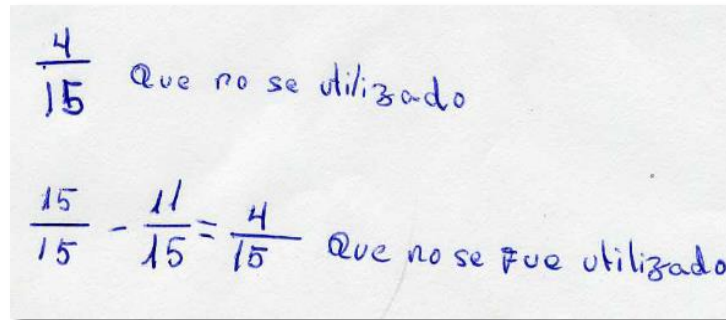 4/15 Que no se utilizado
15/15 - 11/15 = 4/15 Que no se fue utilizado